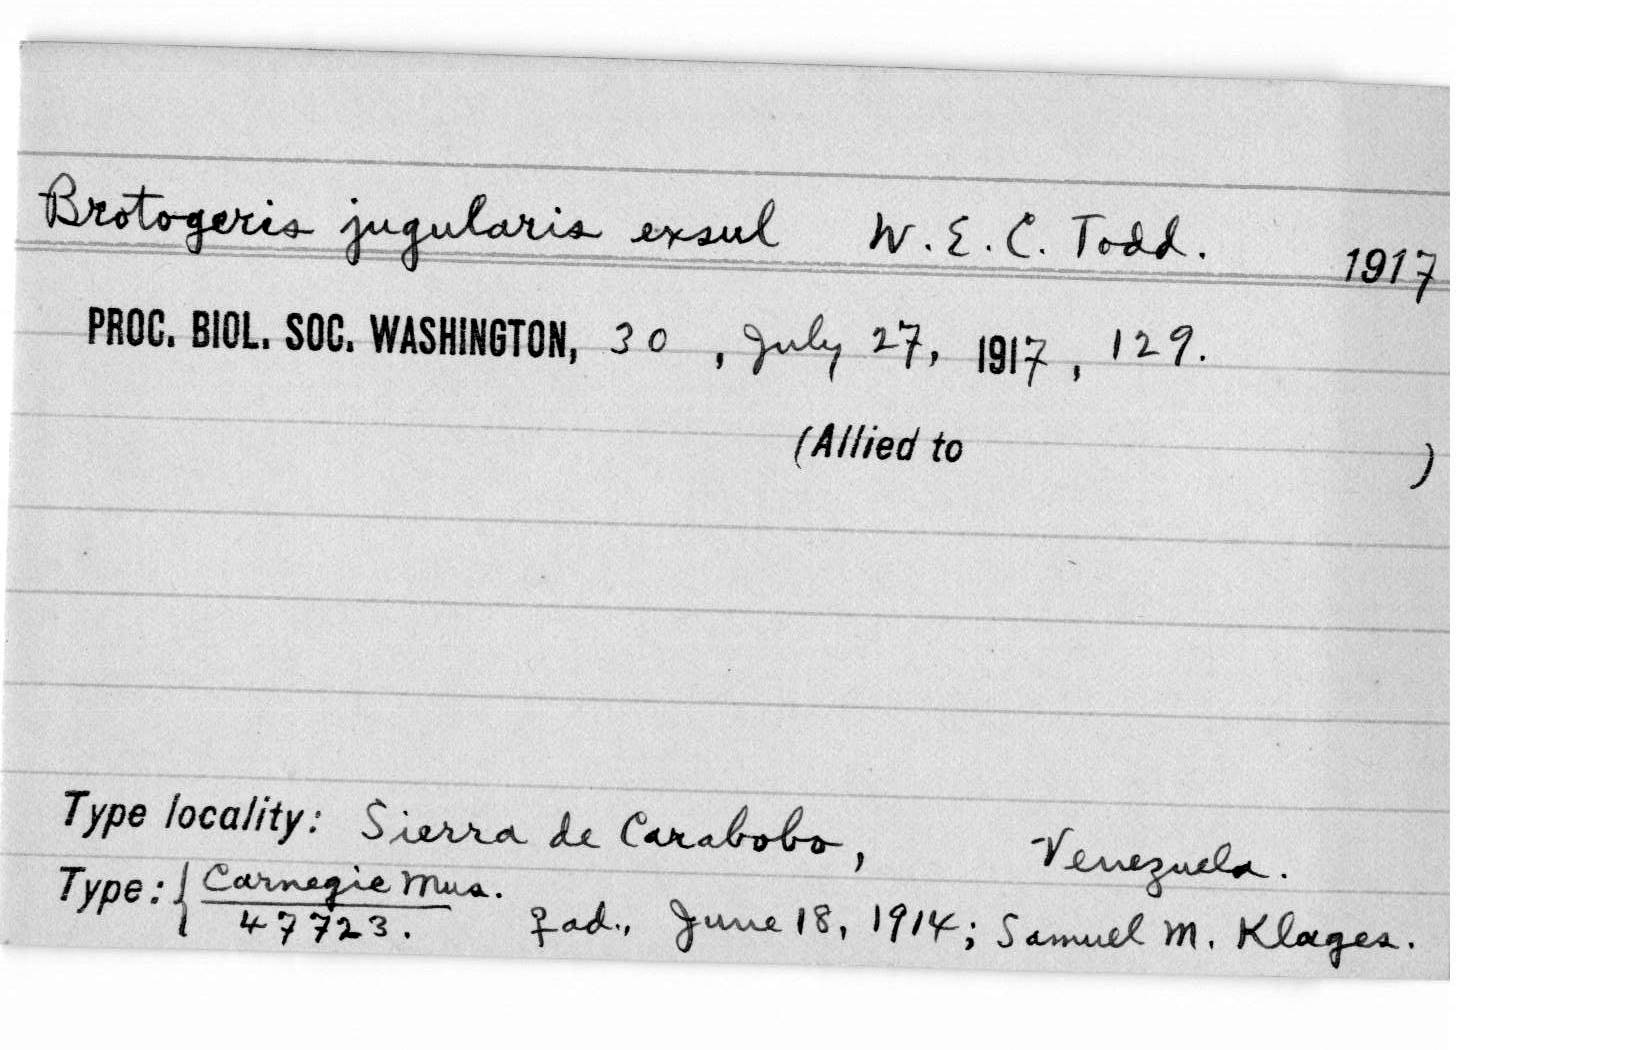 Brotogeris jugularis exsul W. E. C. Todd. 1917
PROC. BIOL. SOC. WASHINGTON, 30, July 27, 1917, 129.
(Allied to )
Type locality: Sierra de Carabobo, Venezuela.
Type: { Carnegie Mus.
47723. ♀ ad., June 18, 1914; Samuel M. Klages.